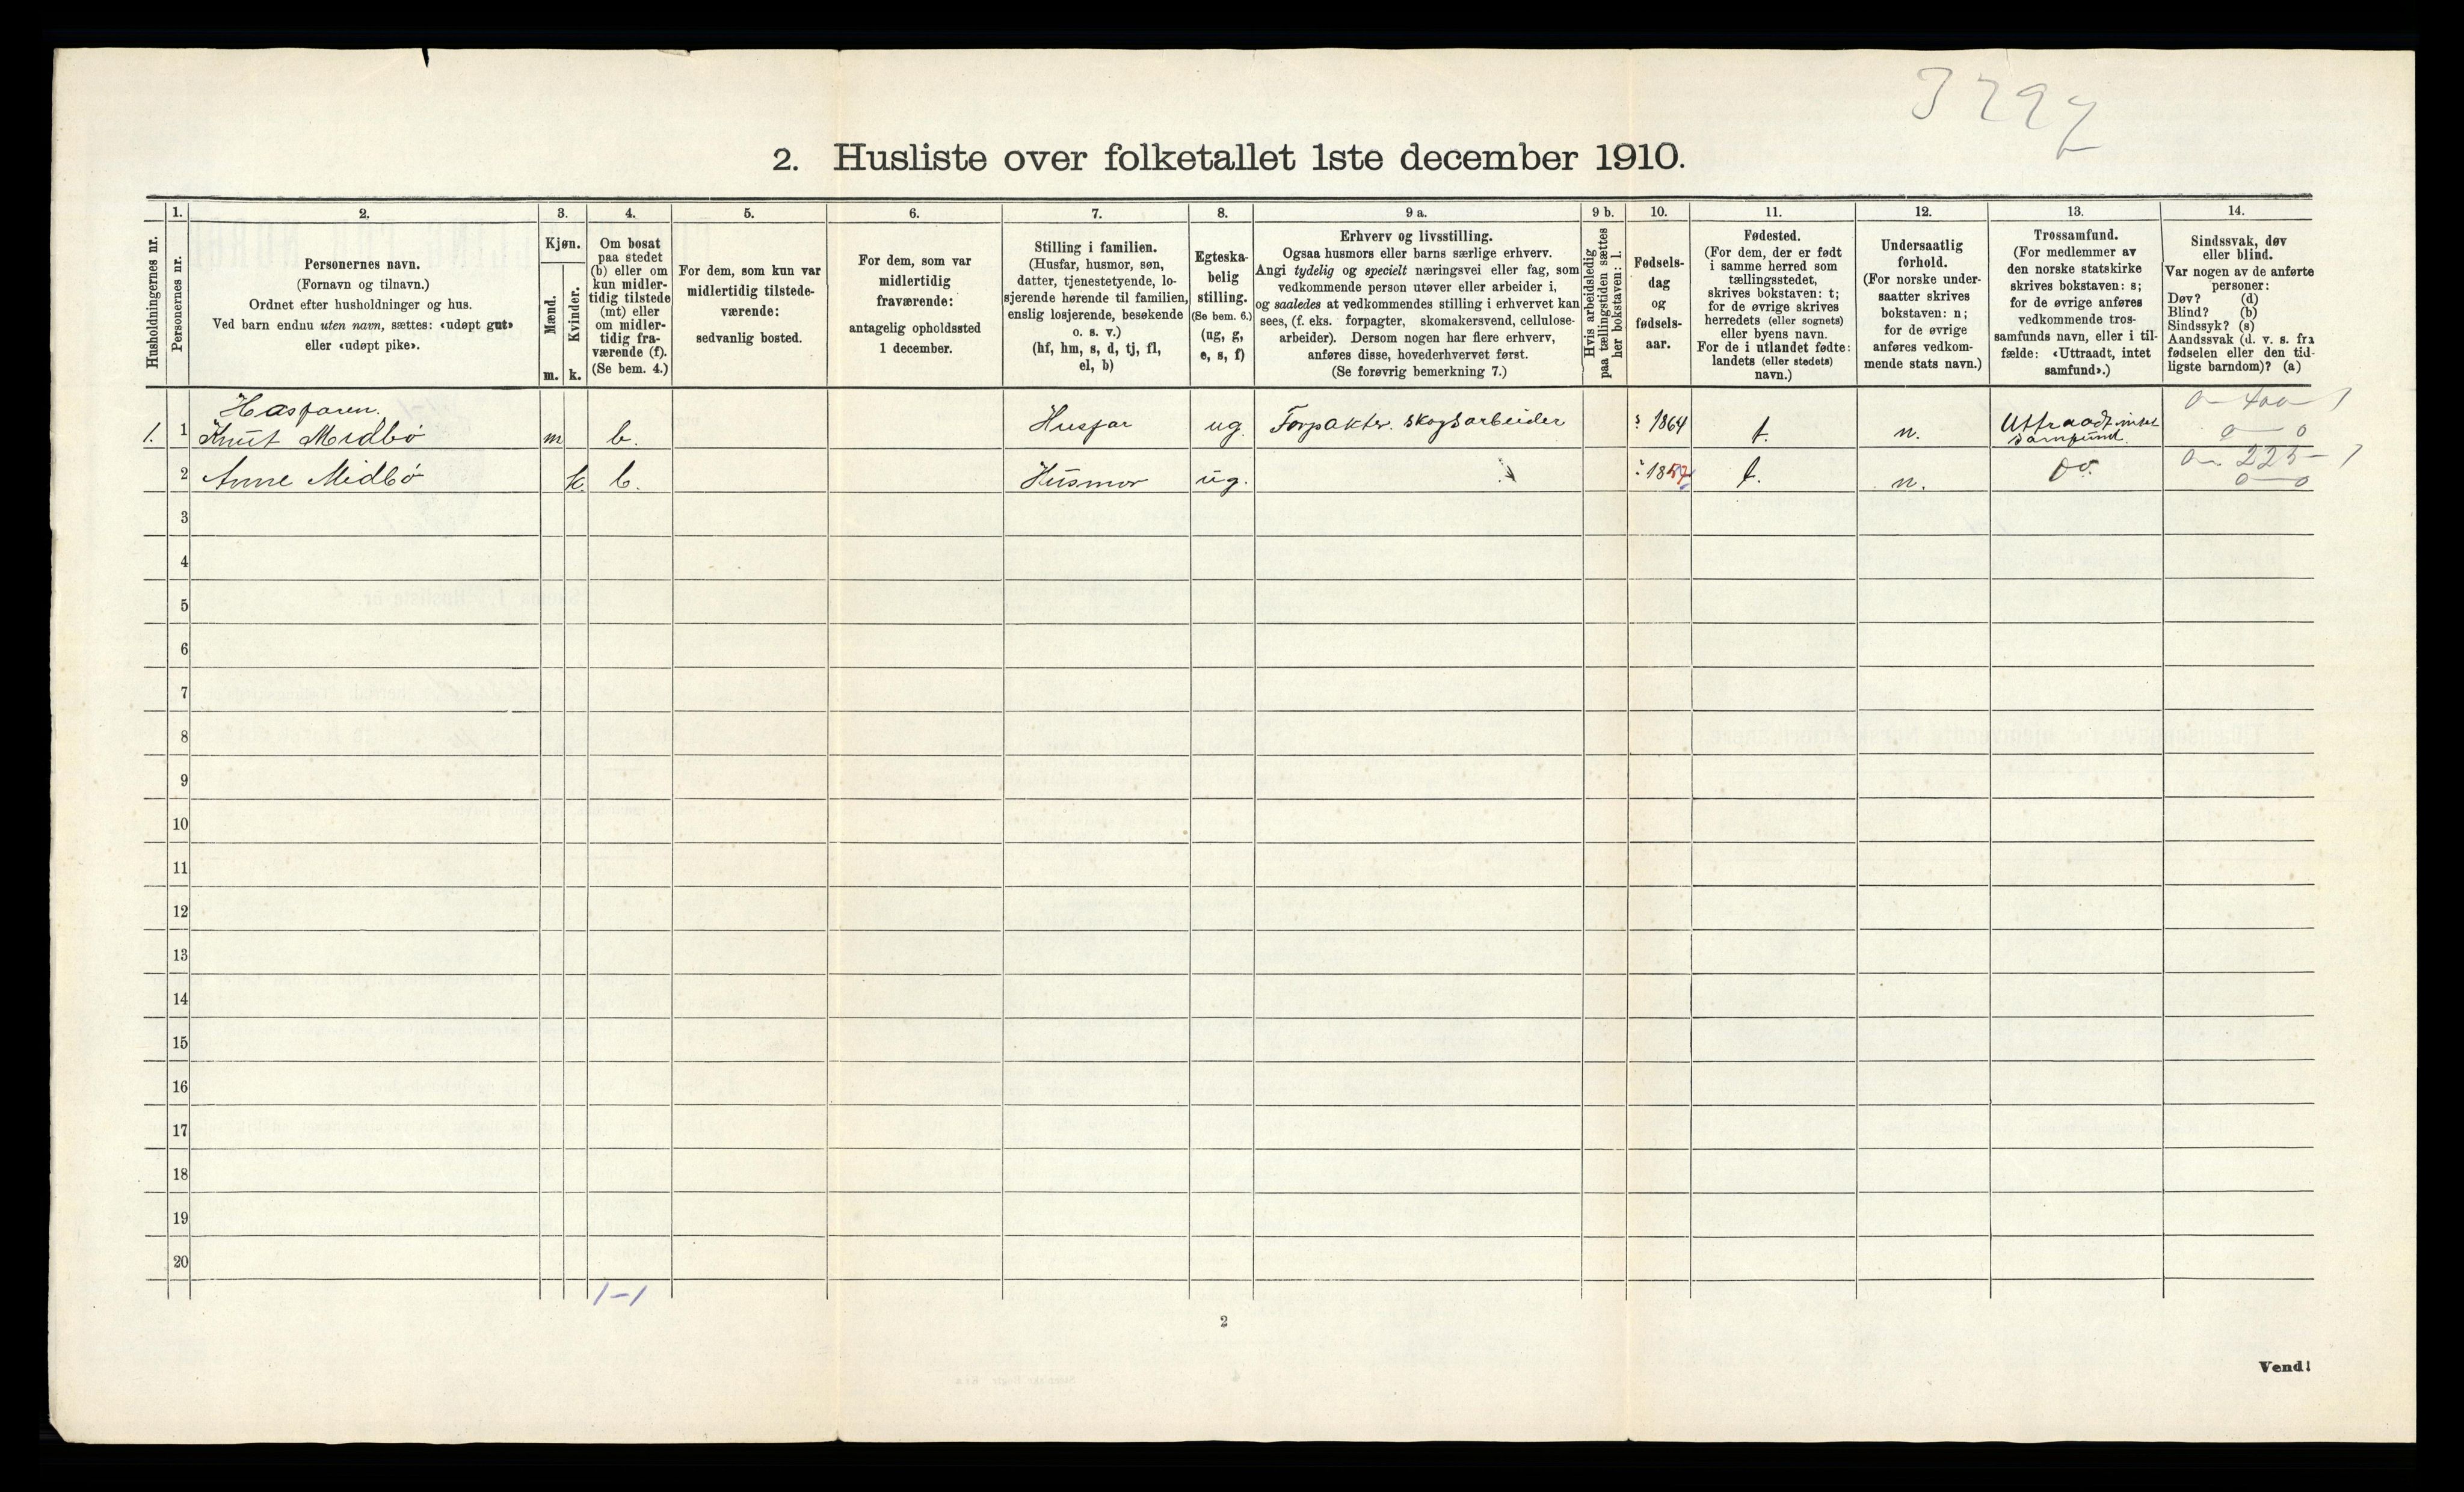 3292
2. Husliste over folketallet 1ste december 1910.
Husholdningernes nr.
1.
Personernes nr.
2.
Personernes navn.
(Fornavn og tilnavn.)
Ordnet efter husholdninger og hus.
Ved barn endnu uten navn, sættes: «udøpt gut»
eller «udøpt pike».
3.
Kjøn.
Mænd.
Kvinder.
m. k.
4.
Om bosat
paa stedet
(b) eller om
kun midler-
tidig tilstede
(mt) eller
om midler-
tidig fra-
værende (f).
(Se bem. 4.)
5.
For dem, som kun var
midlertidig tilstede-
værende:
sedvanlig bosted.
6.
For dem, som var
midlertidig
fraværende:
antagelig opholdssted
1 december.
7.
Stilling i familien.
(Husfar, husmor, søn,
datter, tjenestetyende, lo-
sjerende hørende til familien,
enslig losjerende, besøkende
o. s. v.)
(hf, hm, s, d, tj, fl,
el, b)
8.
Egteska-
belig
stilling.
(Se bem. 6.)
(ug, g,
e, s, f)
9 a.
Erhverv og livsstilling.
Ogsaa husmors eller barns særlige erhverv.
Angi tydelig og specielt næringsvei eller fag, som
vedkommende person utøver eller arbeider i,
og saaledes at vedkommendes stilling i erhvervet kan
sees, (f. eks. forpagter, skomakersvend, cellulose-
arbeider). Dersom nogen har flere erhverv,
anføres disse, hovederhvervet først.
(Se forøvrig bemerkning 7.)
9 b.
Hvis arbeidsledig
paa tællingstiden sættes
her bokstaven: l.
10.
Fødsels-
dag
og
fødsels-
aar.
11.
Fødested.
(For dem, der er født
i samme herred som
tællingsstedet,
skrives bokstaven: t;
for de øvrige skrives
herredets (eller sognets)
eller byens navn.
For de i utlandet fødte:
landets (eller stedets)
navn.)
12.
Undersaatlig
forhold.
(For norske under-
saatter skrives
bokstaven: n;
for de øvrige
anføres vedkom-
mende stats navn.)
13.
Trossamfund.
(For medlemmer av
den norske statskirke
skrives bokstaven: s;
for de øvrige anføres
vedkommende tros-
samfunds navn, eller i til-
fælde: «Uttraadt, intet
samfund».)
14.
Sindssvak, døv
eller blind.
Var nogen av de anførte
personer:
Døv? (d)
Blind? (b)
Sindssyk? (s)
Aandssvak (d. v. s. fra
fødselen eller den tid-
ligste barndom)? (a)
0 - 400 - 1
1. 1 Knut Midbø m b. Husfar ug. Forpakter. skogsarbeider 1864 t. n. Uttraadt intet
samfund. 0 - 0
0 - 225 - 1
2 Anne Midbø k. b. Husmor ug. 1857 t. n. Do. 0 - 0
3
4
5
6
7
8
9
10
11
12
13
14
15
16
17
18
19
20
1-1
2
Vend!